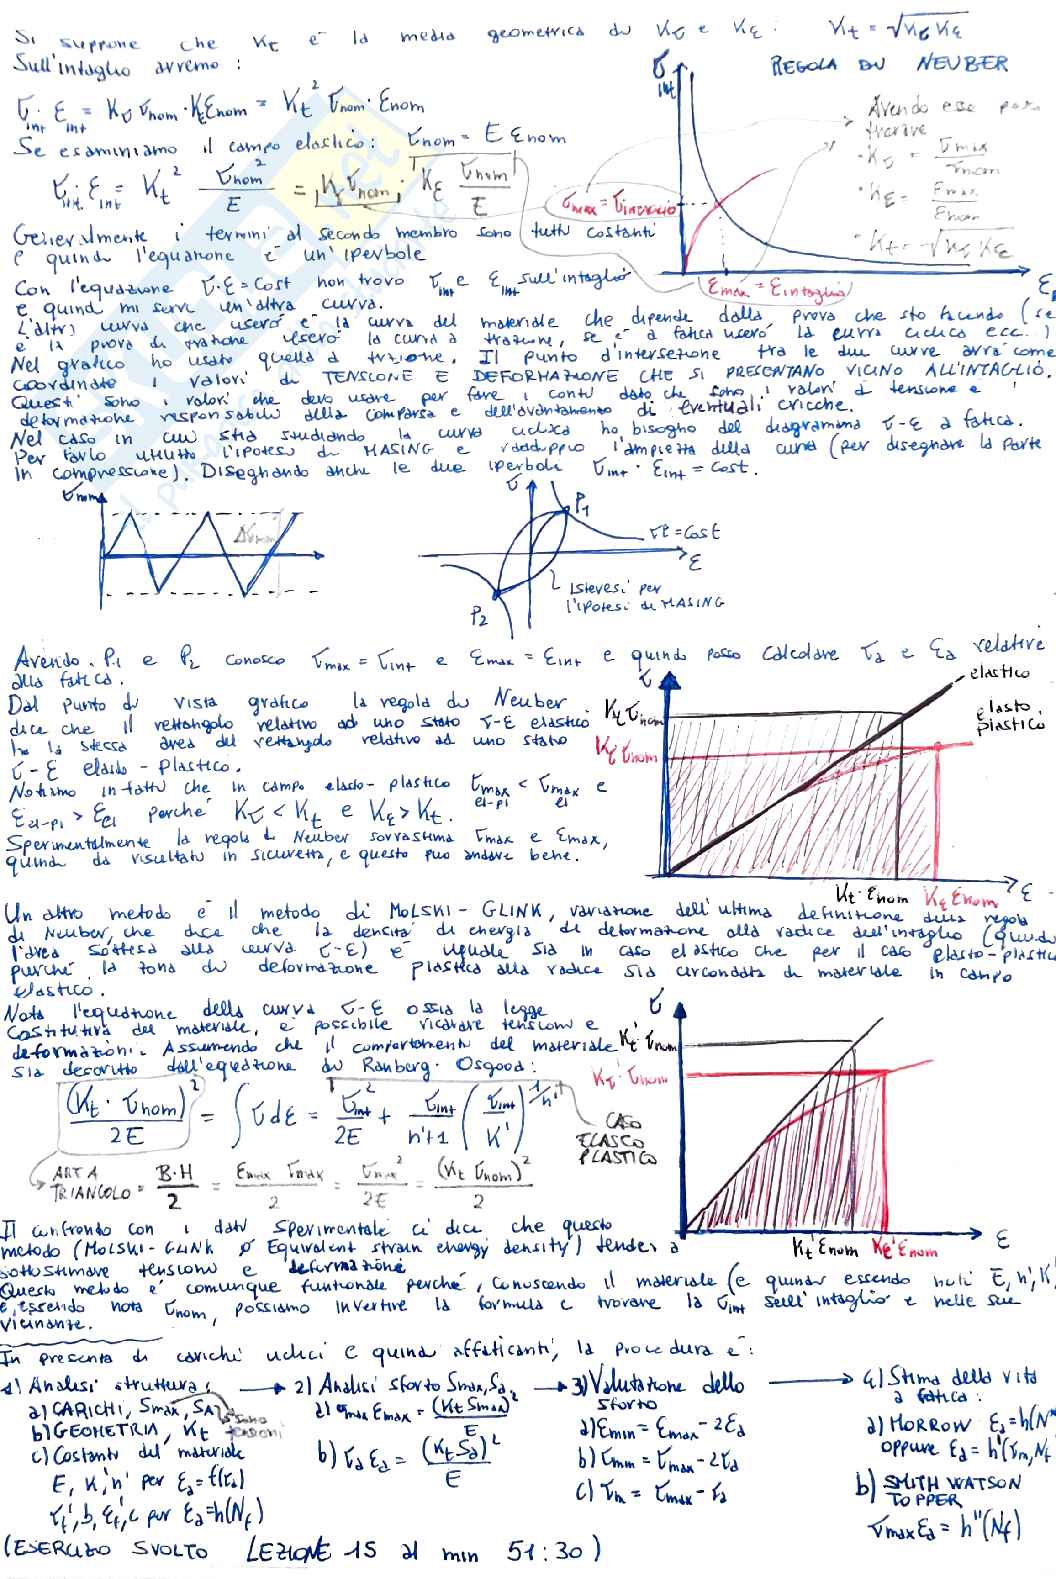 Si suppone che Kt è la media geometrica di Kσ e Kε : Kt = √Kσ Kε
Sull'intaglio avremo :
REGOLA DI NEUBER
σint
σint · εint = Kσ σnom · Kε εnom = Kt² σnom · εnom
Se esaminiamo il campo elastico : σnom = E εnom
σint · εint = Kt² σnom²/E = Kσ σnom · Kε σnom/E
Avendo esse posso trovare
· Kσ = σmax/σnom
· Kε = εmax/εnom
· Kt = √Kσ Kε
σmax = σintaglio
εmax = εintaglio
Generalmente i termini al secondo membro sono tutti costanti
e quindi l'equazione è un'iperbole
Con l'equazione σ·ε = cost non trovo σint e εint sull'intaglio
e quindi mi serve un'altra curva.
L'altra curva che userò è la curva del materiale che dipende dalla prova che sto facendo (se
è la prova di trazione userò la curva a trazione, se è a fatica userò la curva ciclica ecc.)
Nel grafico ho usato quella a trazione. Il punto d'intersezione tra le due curve avrà come
coordinate i valori di TENSIONE E DEFORMAZIONE CHE SI PRESENTANO VICINO ALL'INTAGLIO.
Questi sono i valori che devo usare per fare i conti dato che sono i valori di tensione e
deformazione responsabili della comparsa e dell'avanzamento di eventuali cricche.
Nel caso in cui stia studiando la curva ciclica ho bisogno del diagramma σ-ε a fatica.
Per farlo utilizzo l'ipotesi di MASING e raddoppio l'ampiezza della curva (per disegnare la parte
in compressione). Disegnando anche le due iperboli σint · εint = cost.
σnom
Δσnom
σ
P1
σε = cost
ε
Isteresi per
l'ipotesi di MASING
P2
Avendo P1 e P2 conosco σmax = σint e εmax = εint e quindi posso calcolare σa e εa relative
alla fatica.
Dal punto di vista grafico la regola di Neuber
dice che il rettangolo relativo ad uno stato σ-ε elastico
ha la stessa area del rettangolo relativo ad uno stato
σ-ε elasto-plastico.
Notiamo infatti che in campo elasto-plastico σmax el-pl < σmax el e
εel-pl > εel perché Kσ < Kt e Kε > Kt.
Sperimentalmente la regola di Neuber sovrastima σmax e εmax,
quindi dà risultati in sicurezza, e questo può andare bene.
σ
elastico
elasto plastico
Kt σnom
Kσ σnom
Kt · εnom
Kε εnom
ε
Un altro metodo è il metodo di MOLSKI-GLINK, variazione dell'ultima definizione della regola
di Neuber, che dice che la densità di energia di deformazione alla radice dell'intaglio (quindi
l'area sottesa alla curva σ-ε) è uguale sia in caso elastico che per il caso elasto-plastico
purché la zona di deformazione plastica alla radice sia circondata di materiale in campo
elastico.
Nota l'equazione della curva σ-ε ossia la legge
costitutiva del materiale, è possibile ricavare tensioni e
deformazioni. Assumendo che il comportamento del materiale
sia descritto dall'equazione di Ramberg-Osgood :
(Kt · σnom)²/2E = ∫ σ dε = σint²/2E + σint/(n'+1) (σint/K')^(1/n')
CASO
ELASTO
PLASTICO
AREA
TRIANGOLO = B·H/2 = εmax σmax/2 = σmax²/2E = (Kt σnom)²/2
σ
Kt' σnom
Kσ' σnom
Kt' εnom
Kε' εnom
ε
Il confronto con i dati sperimentale ci dice che questo
metodo (MOLSKI-GLINK o Equivalent strain energy density) tende a
sottostimare tensioni e deformazione
Questo metodo è comunque funzionale perché, conoscendo il materiale (e quindi essendo noti E, n', K'
e, essendo nota σnom, possiamo invertire la formula e trovare la σint sull'intaglio e nelle sue
vicinanze.
In presenza di carichi ciclici e quindi affaticanti, la procedura è :
1) Analisi struttura :
a) CARICHI, Smax, Sa
sono tensioni
b) GEOMETRIA, Kt
c) Costanti del materiale
E, K', n' per εa = f(σa)
σf', b, εf', c per εa = h(Nf)
2) Analisi sforzo Smax, Sa
a) σmax εmax = (Kt Smax)²/E
b) σa εa = (Kt Sa)²/E
3) Valutazione dello
sforzo
a) εmin = εmax - 2εa
b) σmin = σmax - 2σa
c) σm = σmax - σa
4) Stima della vita
a fatica :
a) MORROW εa = h(N*
oppure εa = h'(σm, Nf
b) SMITH WATSON
TOPPER
σmax εa = h''(Nf)
(ESERCIZIO SVOLTO LEZIONE 15 al min 51:30)